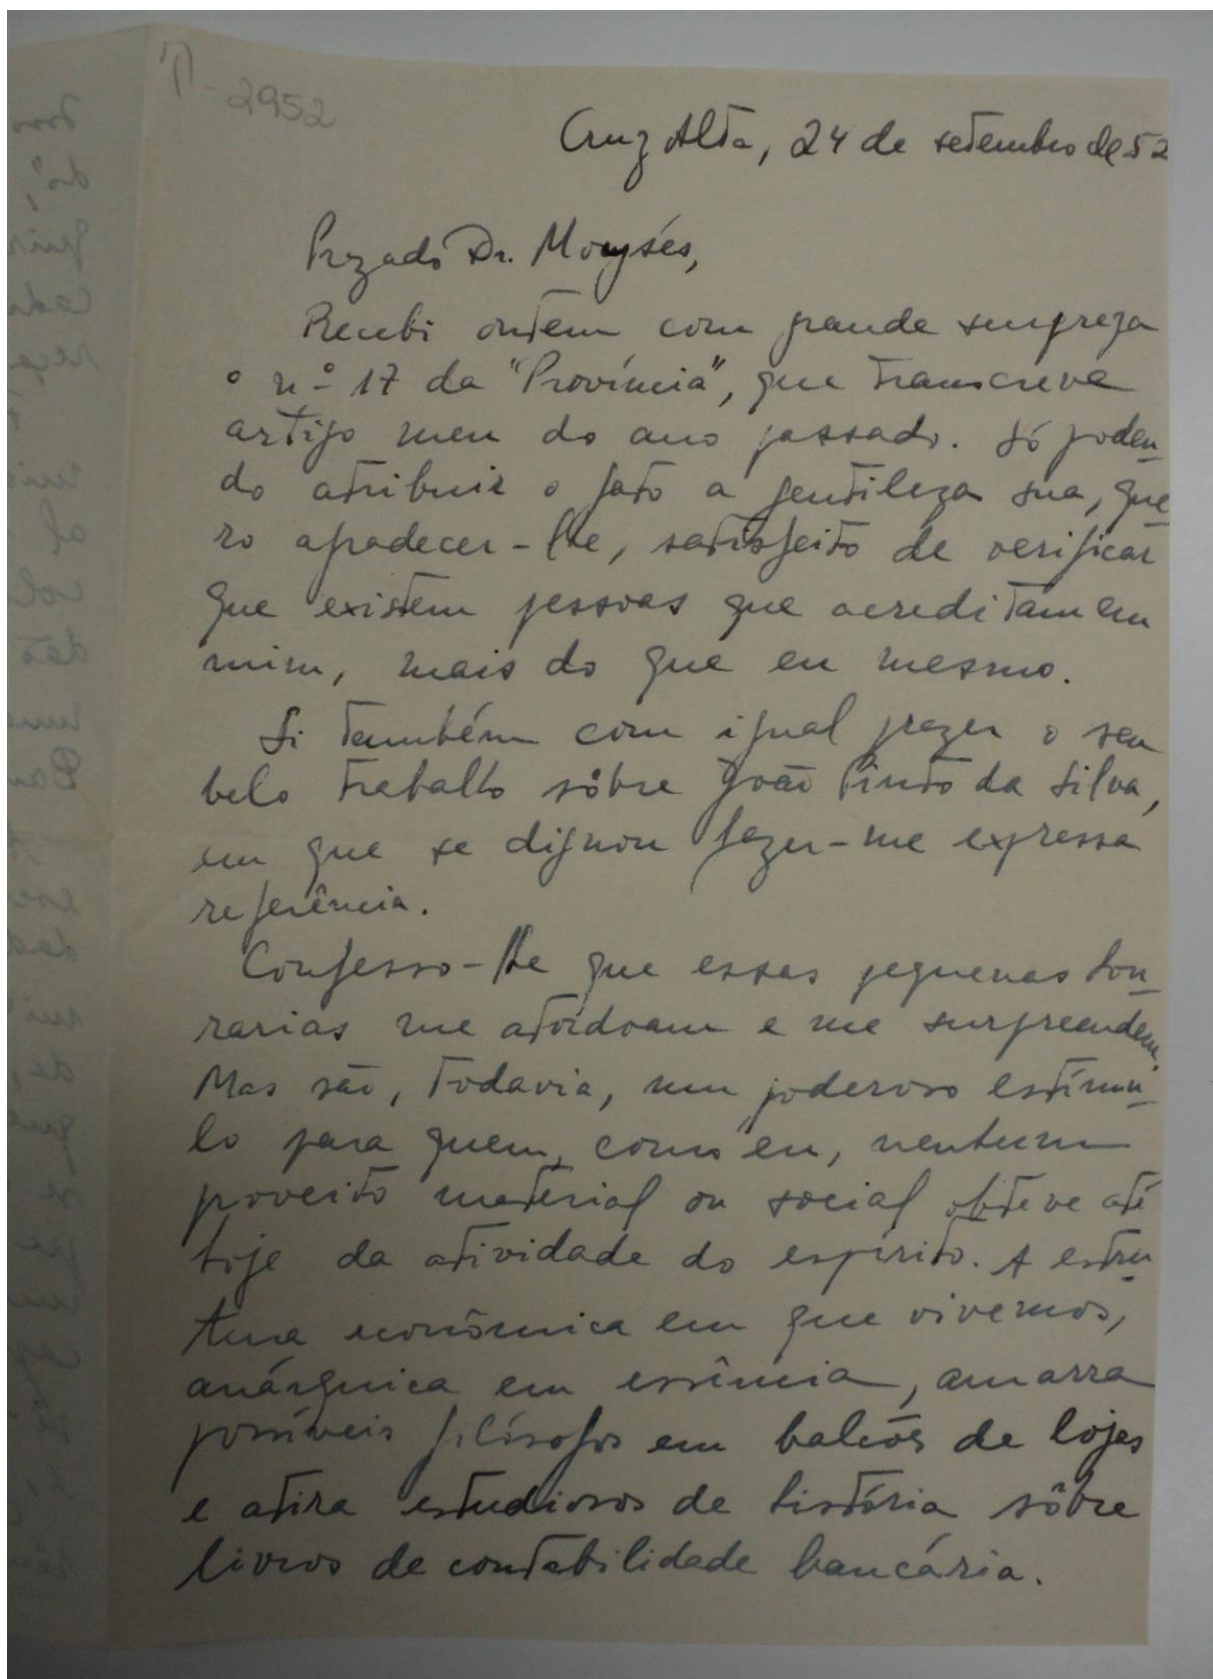 2952
Cruz Alta, 24 de setembro de 52
Prezado Dr. Moysés,
Recebi ontem com grande surpreza
o nº 17 da "Província", que transcreve
artigo meu do ano passado. Só poden-
do atribuir o fato a gentileza sua, que-
ro agradecer-lhe, satisfeito de verificar
que existem pessoas que acreditam em
mim, mais do que eu mesmo.
Li também com igual prazer o seu
belo trabalho sôbre João Pinto da Silva,
em que se dignou fazer-me expressa
referência.
Confesso-lhe que essas pequenas hon-
rarias me atordoam e me surpreendem.
Mas são, todavia, um poderoso estímu-
lo para quem, como eu, nenhum
proveito material ou social obteve até
hoje da atividade do espírito. A estru-
tura econômica em que vivemos,
anárquica em essência, amarra
possíveis filósofos em balcões de lojas
e atira estudiosos de história sôbre
livros de contabilidade bancária.